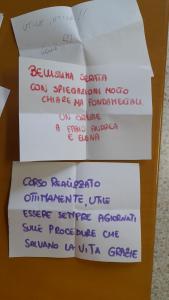 UTILE, OTTIMO!!
BELLISSIMA SERATA
CON SPIEGAZIONI MOLTO
CHIARE MA FONDAMENTALI.
UN GRAZIE
A FABIO ANDREA
E ELENA
CORSO REALIZZATO
OTTIMAMENTE, UTILE
ESSERE SEMPRE AGIORNATI
SULLE PROCEDURE CHE
SALVANO LA VITA GRAZIE